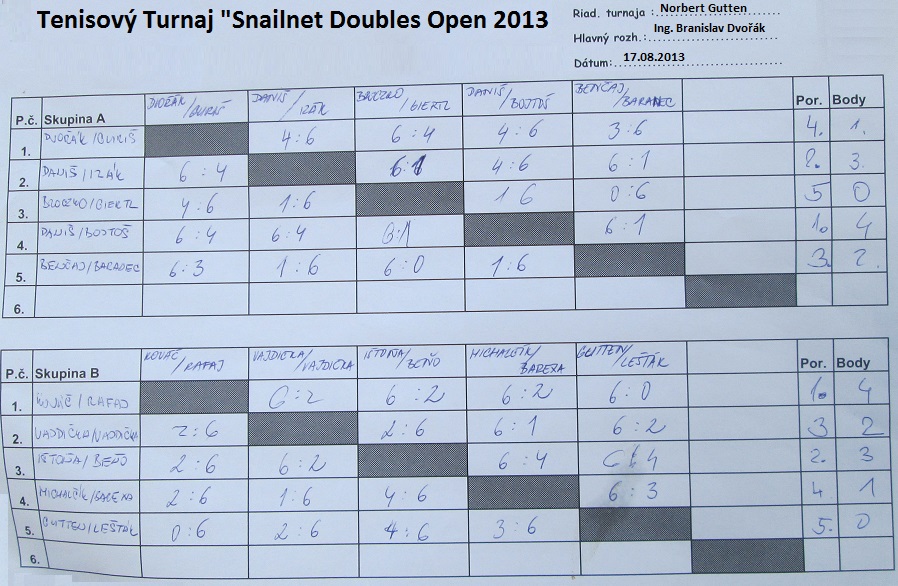 Tenisový Turnaj "Snailnet Doubles Open 2013
Riad. turnaja : Norbert Gutten
Hlavný rozh.: Ing. Branislav Dvořák
Dátum: 17.08.2013
P.č. Skupina A DVOŘÁK/GURIŠ DANIŠ/IZÁK BROZKO/GIERTL DANIŠ/BOJTOŠ BENČAJ/BARANEC Por. Body
1. DVOŘÁK/GURIŠ 4:6 6:4 4:6 3:6 4. 1.
2. DANIŠ/IZÁK 6:4 6:1 4:6 6:1 2. 3.
3. BROZKO/GIERTL 4:6 1:6 1 6 0:6 5 0
4. DANIŠ/BOJTOŠ 6:4 6:4 6:1 6:1 1. 4
5. BENČAJ/BARANEC 6:3 1:6 6:0 1:6 3. 2.
6.
P.č. Skupina B KOVÁČ/RAFAJ VAJDIČKA/VAJDIČKA IŠTOŇA/BEŇO MICHALČÍK/BARENA GUTTEN/LEŠŤÁK Por. Body
1. KOVÁČ/RAFAJ 6:2 6:2 6:2 6:0 1. 4
2. VAJDIČKA/VAJDIČKA 2:6 2:6 6:1 6:2 3 2
3. IŠTOŇA/BEŇO 2:6 6:2 6:4 6:4 2. 3
4. MICHALČÍK/BARENA 2:6 1:6 4:6 6:3 4. 1
5. GUTTEN/LEŠŤÁK 0:6 2:6 4:6 3:6 5. 0
6.